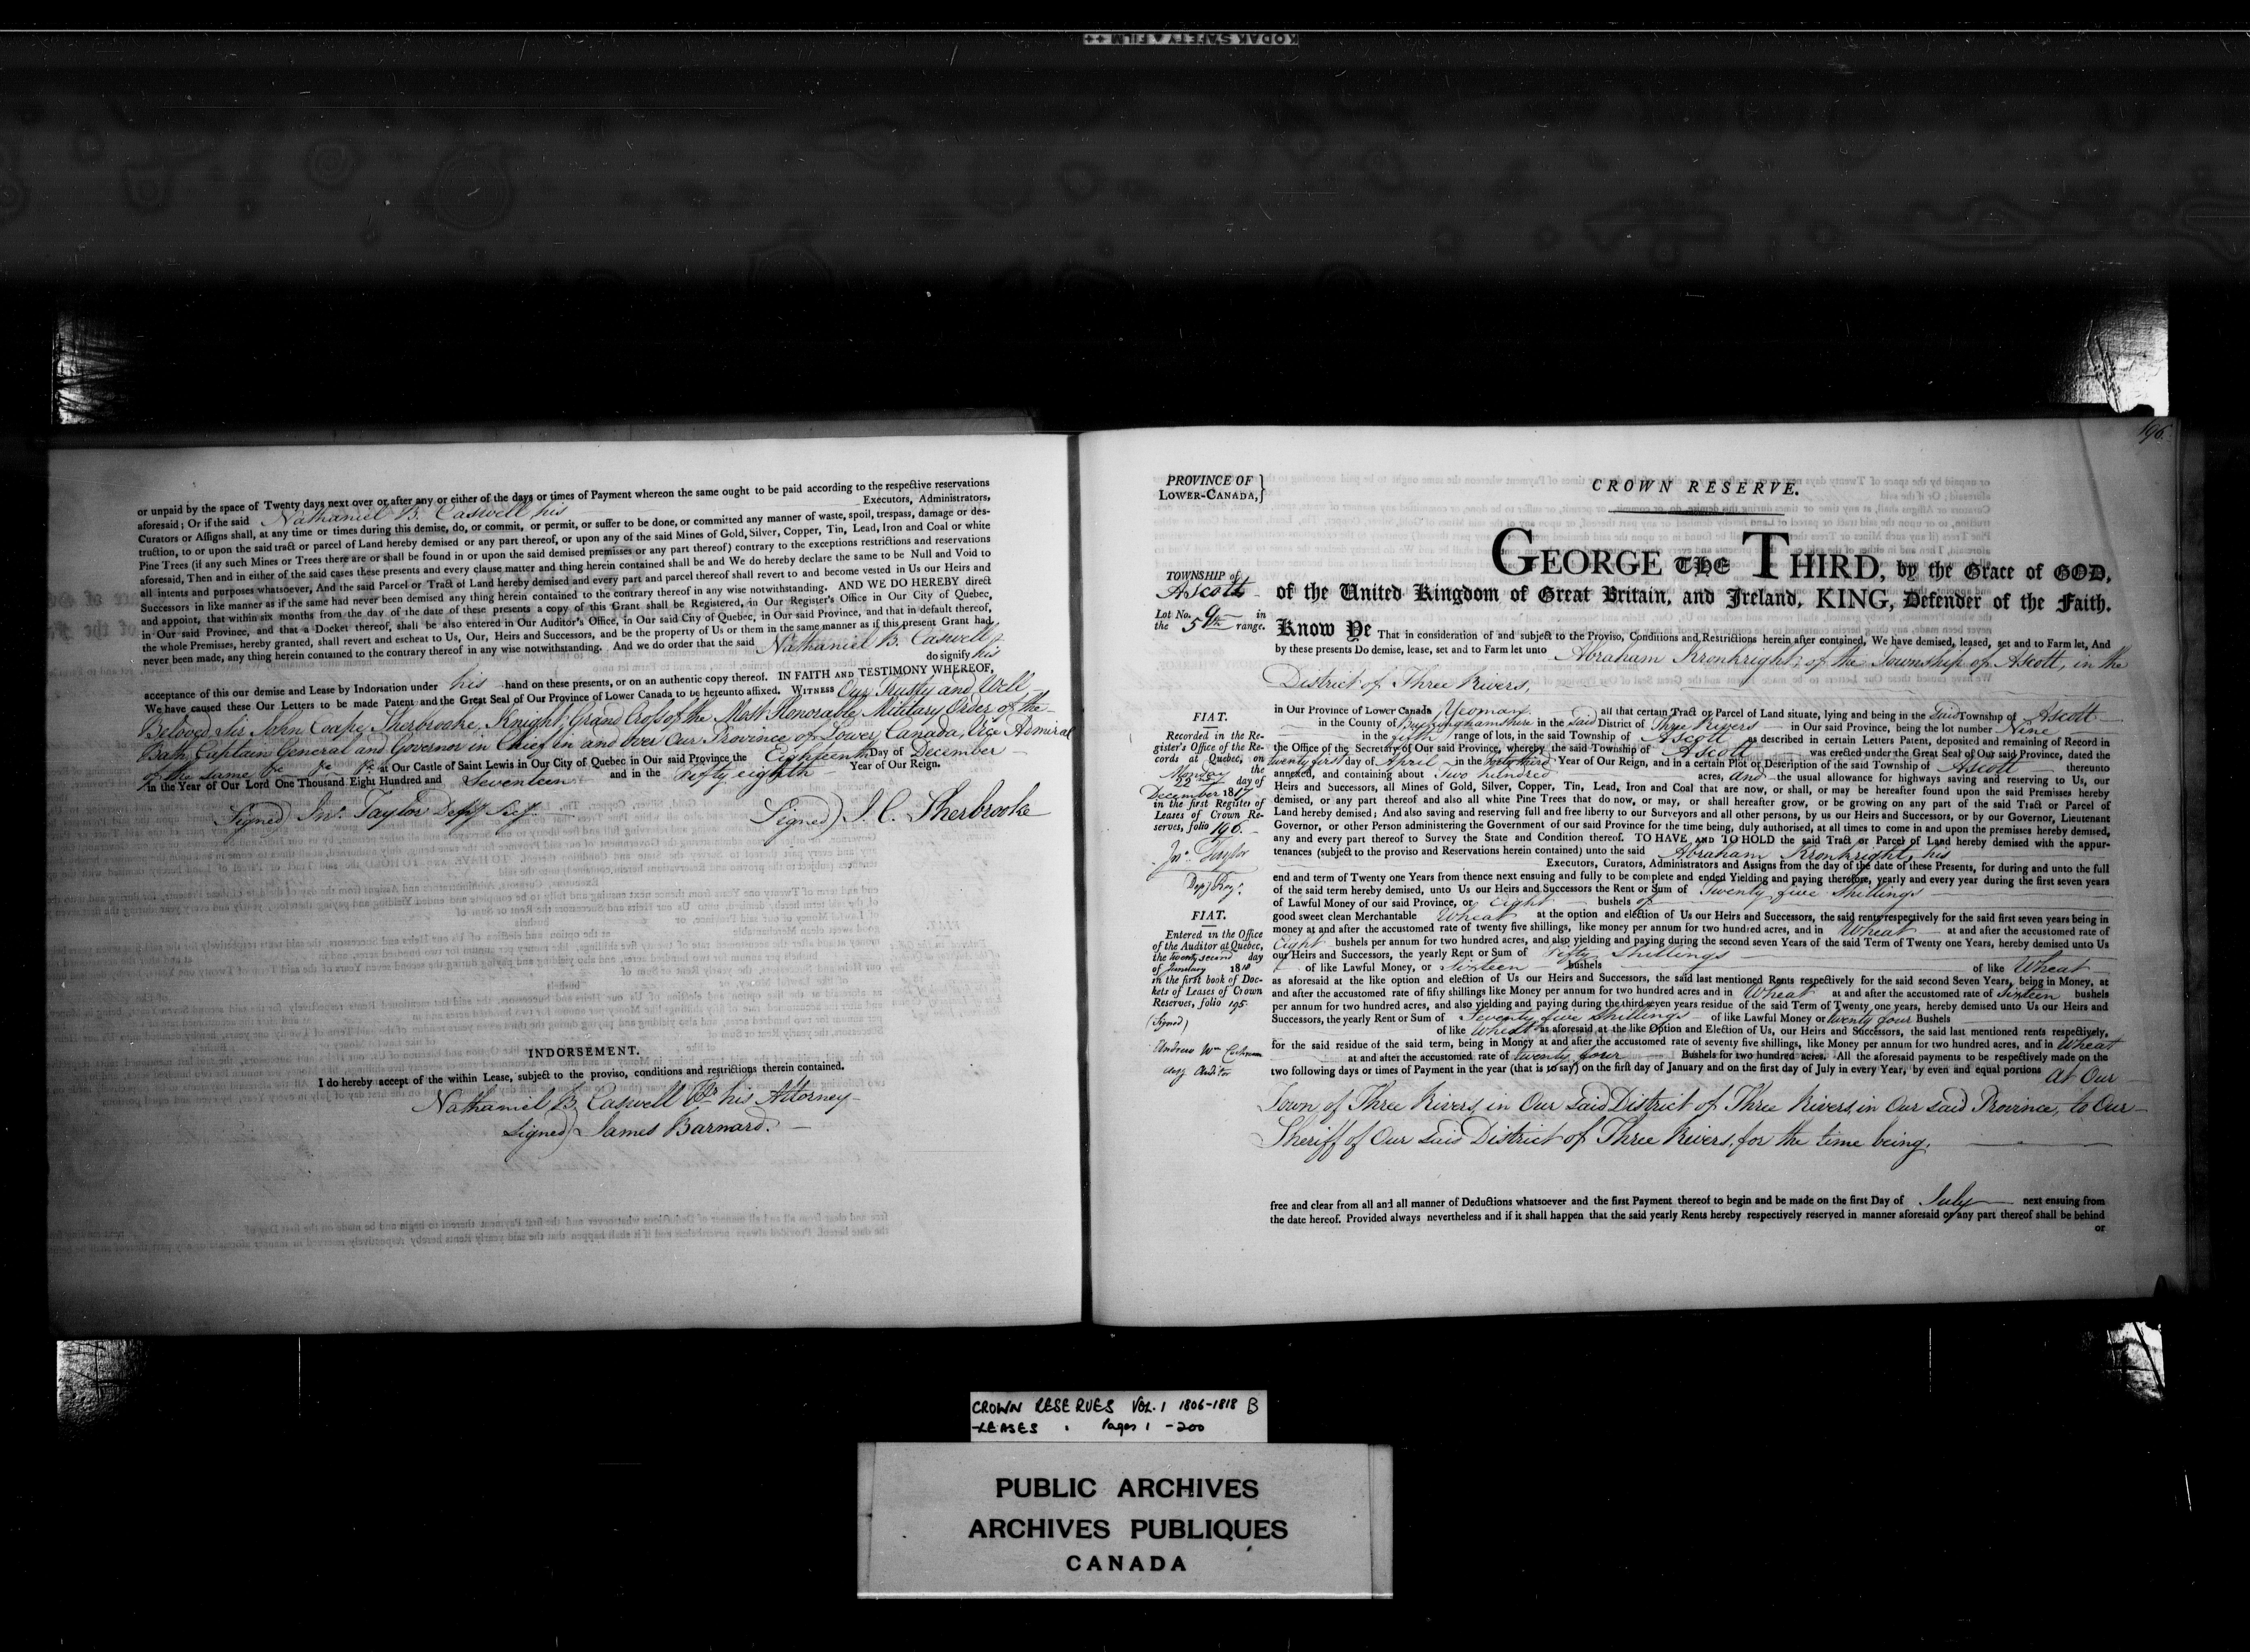 KODAK SAFETY ▲ FILM ++
or unpaid by the space of Twenty days next over or after any or either of the days or times of Payment whereon the same ought to be paid according to the respective reservations
aforesaid; Or if the said Nathaniel B. Caswell his Executors, Administrators,
Curators or Assigns shall, at any time or times during this demise, do, or commit, or permit, or suffer to be done, or committed any manner of waste, spoil, trespass, damage or des-
truction, to or upon the said tract or parcel of Land hereby demised or any part thereof, or upon any of the said Mines of Gold, Silver, Copper, Tin, Lead, Iron and Coal or white
Pine Trees (if any such Mines or Trees there are or shall be found in or upon the said demised premises or any part thereof) contrary to the exceptions restrictions and reservations
aforesaid, Then and in either of the said cases these presents and every clause matter and thing herein contained shall be and We do hereby declare the same to be Null and Void to
all intents and purposes whatsoever, And the said Parcel or Tract of Land hereby demised and every part and parcel thereof shall revert to and become vested in Us our Heirs and
Successors in like manner as if the same had never been demised any thing herein contained to the contrary thereof in any wise notwithstanding. AND WE DO HEREBY direct
and appoint, that within six months from the day of the date of these presents a copy of this Grant shall be Registered, in Our Register's Office in Our City of Quebec,
in Our said Province, and that a Docket thereof, shall be also entered in Our Auditor's Office, in Our said City of Quebec, in Our said Province, and that in default thereof,
the whole Premises, hereby granted, shall revert and escheat to Us, Our, Heirs and Successors, and be the property of Us or them in the same manner as if this present Grant had
never been made, any thing herein contained to the contrary thereof in any wise notwithstanding. And we do order that the said Nathaniel B. Caswell
do signify his
acceptance of this our demise and Lease by Indorsation under his hand on these presents, or on an authentic copy thereof. IN FAITH AND TESTIMONY WHEREOF,
We have caused these Our Letters to be made Patent and the Great Seal of Our Province of Lower Canada to be hereunto affixed. WITNESS Our Trusty and Well
Beloved Sir John Coape Sherbrooke, Knight, Grand Cross of the Most Honorable Military Order of the
Bath, Captain General and Governor in Chief in and over Our Province of Lower Canada, Vice Admiral
of the same &c &c &c at Our Castle of Saint Lewis in Our City of Quebec in Our said Province the Eighteenth Day of December
in the Year of Our Lord One Thousand Eight Hundred and Seventeen and in the Fifty eighth Year of Our Reign.
Signed) Jno. Taylor Depy Secy. Signed) J. C. Sherbrooke
INDORSEMENT.
I do hereby accept of the within Lease, subject to the proviso, conditions and restrictions therein contained.
Nathaniel B. Caswell Pr his Attorney
Signed) James Barnard.
196.
PROVINCE OF
LOWER-CANADA,}
CROWN RESERVE.
TOWNSHIP of
Ascott
Lot No. 9 in
the 5th range.
GEORGE THE THIRD, by the Grace of GOD,
of the United Kingdom of Great Britain, and Ireland, KING, Defender of the Faith.
Know Ye That in consideration of and subject to the Proviso, Conditions and Restrictions herein after contained, We have demised, leased, set and to Farm let, And
by these presents Do demise, lease, set and to Farm let unto Abraham Kronkright, of the Township of Ascott, in the
District of Three Rivers,
in Our Province of Lower Canada Yeoman all that certain Tract or Parcel of Land situate, lying and being in the said Township of Ascott
in the County of Buckinghamshire in the said District of Three Rivers in Our said Province, being the lot number Nine
in the fifth range of lots, in the said Township of Ascott as described in certain Letters Patent, deposited and remaining of Record in
the Office of the Secretary of Our said Province, whereby the said Township of Ascott was erected under the Great Seal of Our said Province, dated the
twenty first day of April in the forty third Year of Our Reign, and in a certain Plot or Description of the said Township of Ascott thereunto
annexed, and containing about Two hundred acres, and the usual allowance for highways saving and reserving to Us, our
Heirs and Successors, all Mines of Gold, Silver, Copper, Tin, Lead, Iron and Coal that are now, or shall, or may be hereafter found upon the said Premises hereby
demised, or any part thereof and also all white Pine Trees that do now, or may, or shall hereafter grow, or be growing on any part of the said Tract or Parcel of
Land hereby demised; And also saving and reserving full and free liberty to our Surveyors and all other persons, by us our Heirs and Successors, or by our Governor, Lieutenant
Governor, or other Person administering the Government of our said Province for the time being, duly authorised, at all times to come in and upon the premises hereby demised,
any and every part thereof to Survey the State and Condition thereof. TO HAVE AND TO HOLD the said Tract or Parcel of Land hereby demised with the appur-
tenances (subject to the proviso and Reservations herein contained) unto the said Abraham Kronkright, his
Executors, Curators, Administrators and Assigns from the day of the date of these Presents, for during and unto the full
end and term of Twenty one Years from thence next ensuing and fully to be complete and ended Yielding and paying therefore, yearly and every year during the first seven years
of the said term hereby demised, unto Us our Heirs and Successors the Rent or Sum of Twenty five Shillings
of Lawful Money of our said Province, or Eight bushels of
good sweet clean Merchantable Wheat at the option and election of Us our Heirs and Successors, the said rents respectively for the said first seven years being in
money at and after the accustomed rate of twenty five shillings, like money per annum for two hundred acres, and in Wheat at and after the accustomed rate of
Eight bushels per annum for two hundred acres, and also yielding and paying during the second seven Years of the said Term of Twenty one Years, hereby demised unto Us
our Heirs and Successors, the yearly Rent or Sum of Fifty Shillings
of like Lawful Money, or Sixteen bushels of like Wheat
as aforesaid at the like option and election of Us our Heirs and Successors, the said last mentioned Rents respectively for the said second Seven Years, being in Money, at
and after the accustomed rate of fifty shillings like Money per annum for two hundred acres and in Wheat at and after the accustomed rate of Sixteen bushels
per annum for two hundred acres, and also yielding and paying during the third seven years residue of the said Term of Twenty one years, hereby demised unto Us our Heirs and
Successors, the yearly Rent or Sum of Seventy five Shillings of like Lawful Money or twenty four Bushels
of like Wheat as aforesaid at the like Option and Election of Us, our Heirs and Successors, the said last mentioned rents respectively,
for the said residue of the said term, being in Money at and after the accustomed rate of seventy five shillings, like Money per annum for two hundred acres, and in Wheat
at and after the accustomed rate of twenty four Bushels for two hundred acres. All the aforesaid payments to be respectively made on the
two following days or times of Payment in the year (that is to say) on the first day of January and on the first day of July in every Year, by even and equal portions at Our
Town of Three Rivers in Our said District of Three Rivers, in Our said Province, to Our
Sheriff of Our said District of Three Rivers, for the time being.
free and clear from all and all manner of Deductions whatsoever and the first Payment thereof to begin and be made on the first Day of July next ensuing from
the date hereof. Provided always nevertheless and if it shall happen that the said yearly Rents hereby respectively reserved in manner aforesaid or any part thereof shall be behind
or
FIAT.
Recorded in the Re-
gister's Office of the Re-
cords at Quebec, on
the
Monday
22nd day of
December 1817
in the first Register of
Leases of Crown Re-
serves, folio 196.
Jno. Taylor
Depy Regr.
FIAT.
Entered in the Office
of the Auditor at Quebec,
the twenty second day
of January 1818
in the first book of Doc-
kets of Leases of Crown
Reserves, folio 195.
(Signed)
Andrew Wm Cochran
depy Auditor
CROWN RESERVES VOL. 1 1806-1818 B
-LEASES Pages 1 -200
PUBLIC ARCHIVES
ARCHIVES PUBLIQUES
CANADA